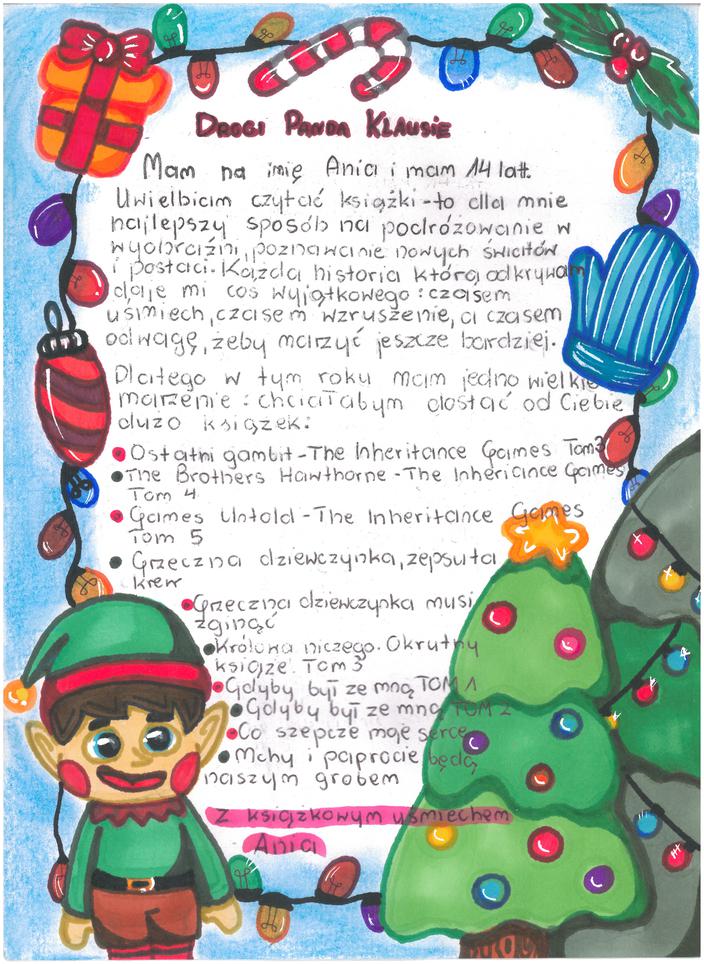 DROGI PANDA KLAUSIE
Mam na imię Ania i mam 14 lat.
Uwielbiam czytać książki - to dla mnie
najlepszy sposób na podróżowanie w
wyobraźni, poznawanie nowych światów
i postaci. Każda historia którą odkrywam
daje mi coś wyjątkowego: czasem
uśmiech, czasem wzruszenie, a czasem
odwagę, żeby marzyć jeszcze bardziej.
Dlatego w tym roku mam jedno wielkie
marzenie: chciałabym dostać od Ciebie
dużo książek:
• Ostatni gambit - The Inheritance Games Tom 3
• The Brothers Hawthorne - The Inheriance Games
Tom 4
• Games Untold - The Inheritance Games
Tom 5
• Grzeczna dziewczynka, zepsuta
krew
• Grzeczna dziewczynka musi
zginąć
• Królowa niczego. Okrutny
książe. Tom 3
• Gdyby był ze mną TOM 1
• Gdyby był ze mną TOM 2
• Co szepcze moje serce
• Mchy i paprocie będą
naszym grobem
Z książkowym uśmiechem
Ania